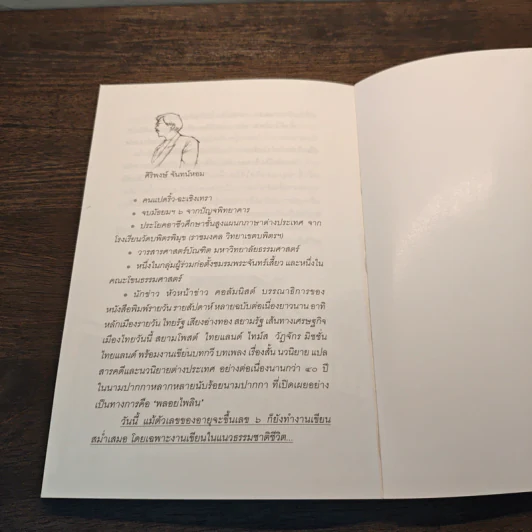 ศิริพงษ์ จันทน์หอม
• คนแปดริ้ว-ฉะเชิงเทรา
• จบมัธยมฯ ๖ จากปัญจพิทยาคาร
• ประโยคอาชีวศึกษาชั้นสูงแผนกภาษาต่างประเทศ จาก
โรงเรียนวัดบพิตรพิมุข (ราชมงคล วิทยาเขตบพิตรฯ)
• วารสารศาสตร์บัณฑิต มหาวิทยาลัยธรรมศาสตร์
• หนึ่งในกลุ่มผู้ร่วมก่อตั้งชมรมพระจันทร์เสี้ยว และหนึ่งใน
คณะโขนธรรมศาสตร์
• นักข่าว หัวหน้าข่าว คอลัมนิสต์ บรรณาธิการของ
หนังสือพิมพ์รายวัน รายสัปดาห์ หลายฉบับต่อเนื่องยาวนาน อาทิ
หลักเมืองรายวัน ไทยรัฐ เสียงอ่างทอง สยามรัฐ เส้นทางเศรษฐกิจ
เมืองไทยวันนี้ สยามโพสต์ ไทยแลนด์ ไทม์ส วัฏจักร มิชชั่น
ไทยแลนด์ พร้อมงานเขียนบทกวี บทเพลง เรื่องสั้น นวนิยาย แปล
สารคดีและนวนิยายต่างประเทศ อย่างต่อเนื่องนานกว่า ๔๐ ปี
ในนามปากกาหลากหลายนับร้อยนามปากกา ที่เปิดเผยอย่าง
เป็นทางการคือ ‘พลอยไพลิน’
วันนี้ แม้ตัวเลขของอายุจะขึ้นเลข ๖ ก็ยังทำงานเขียน
สม่ำเสมอ โดยเฉพาะงานเขียนในแนวธรรมชาติชีวิต...